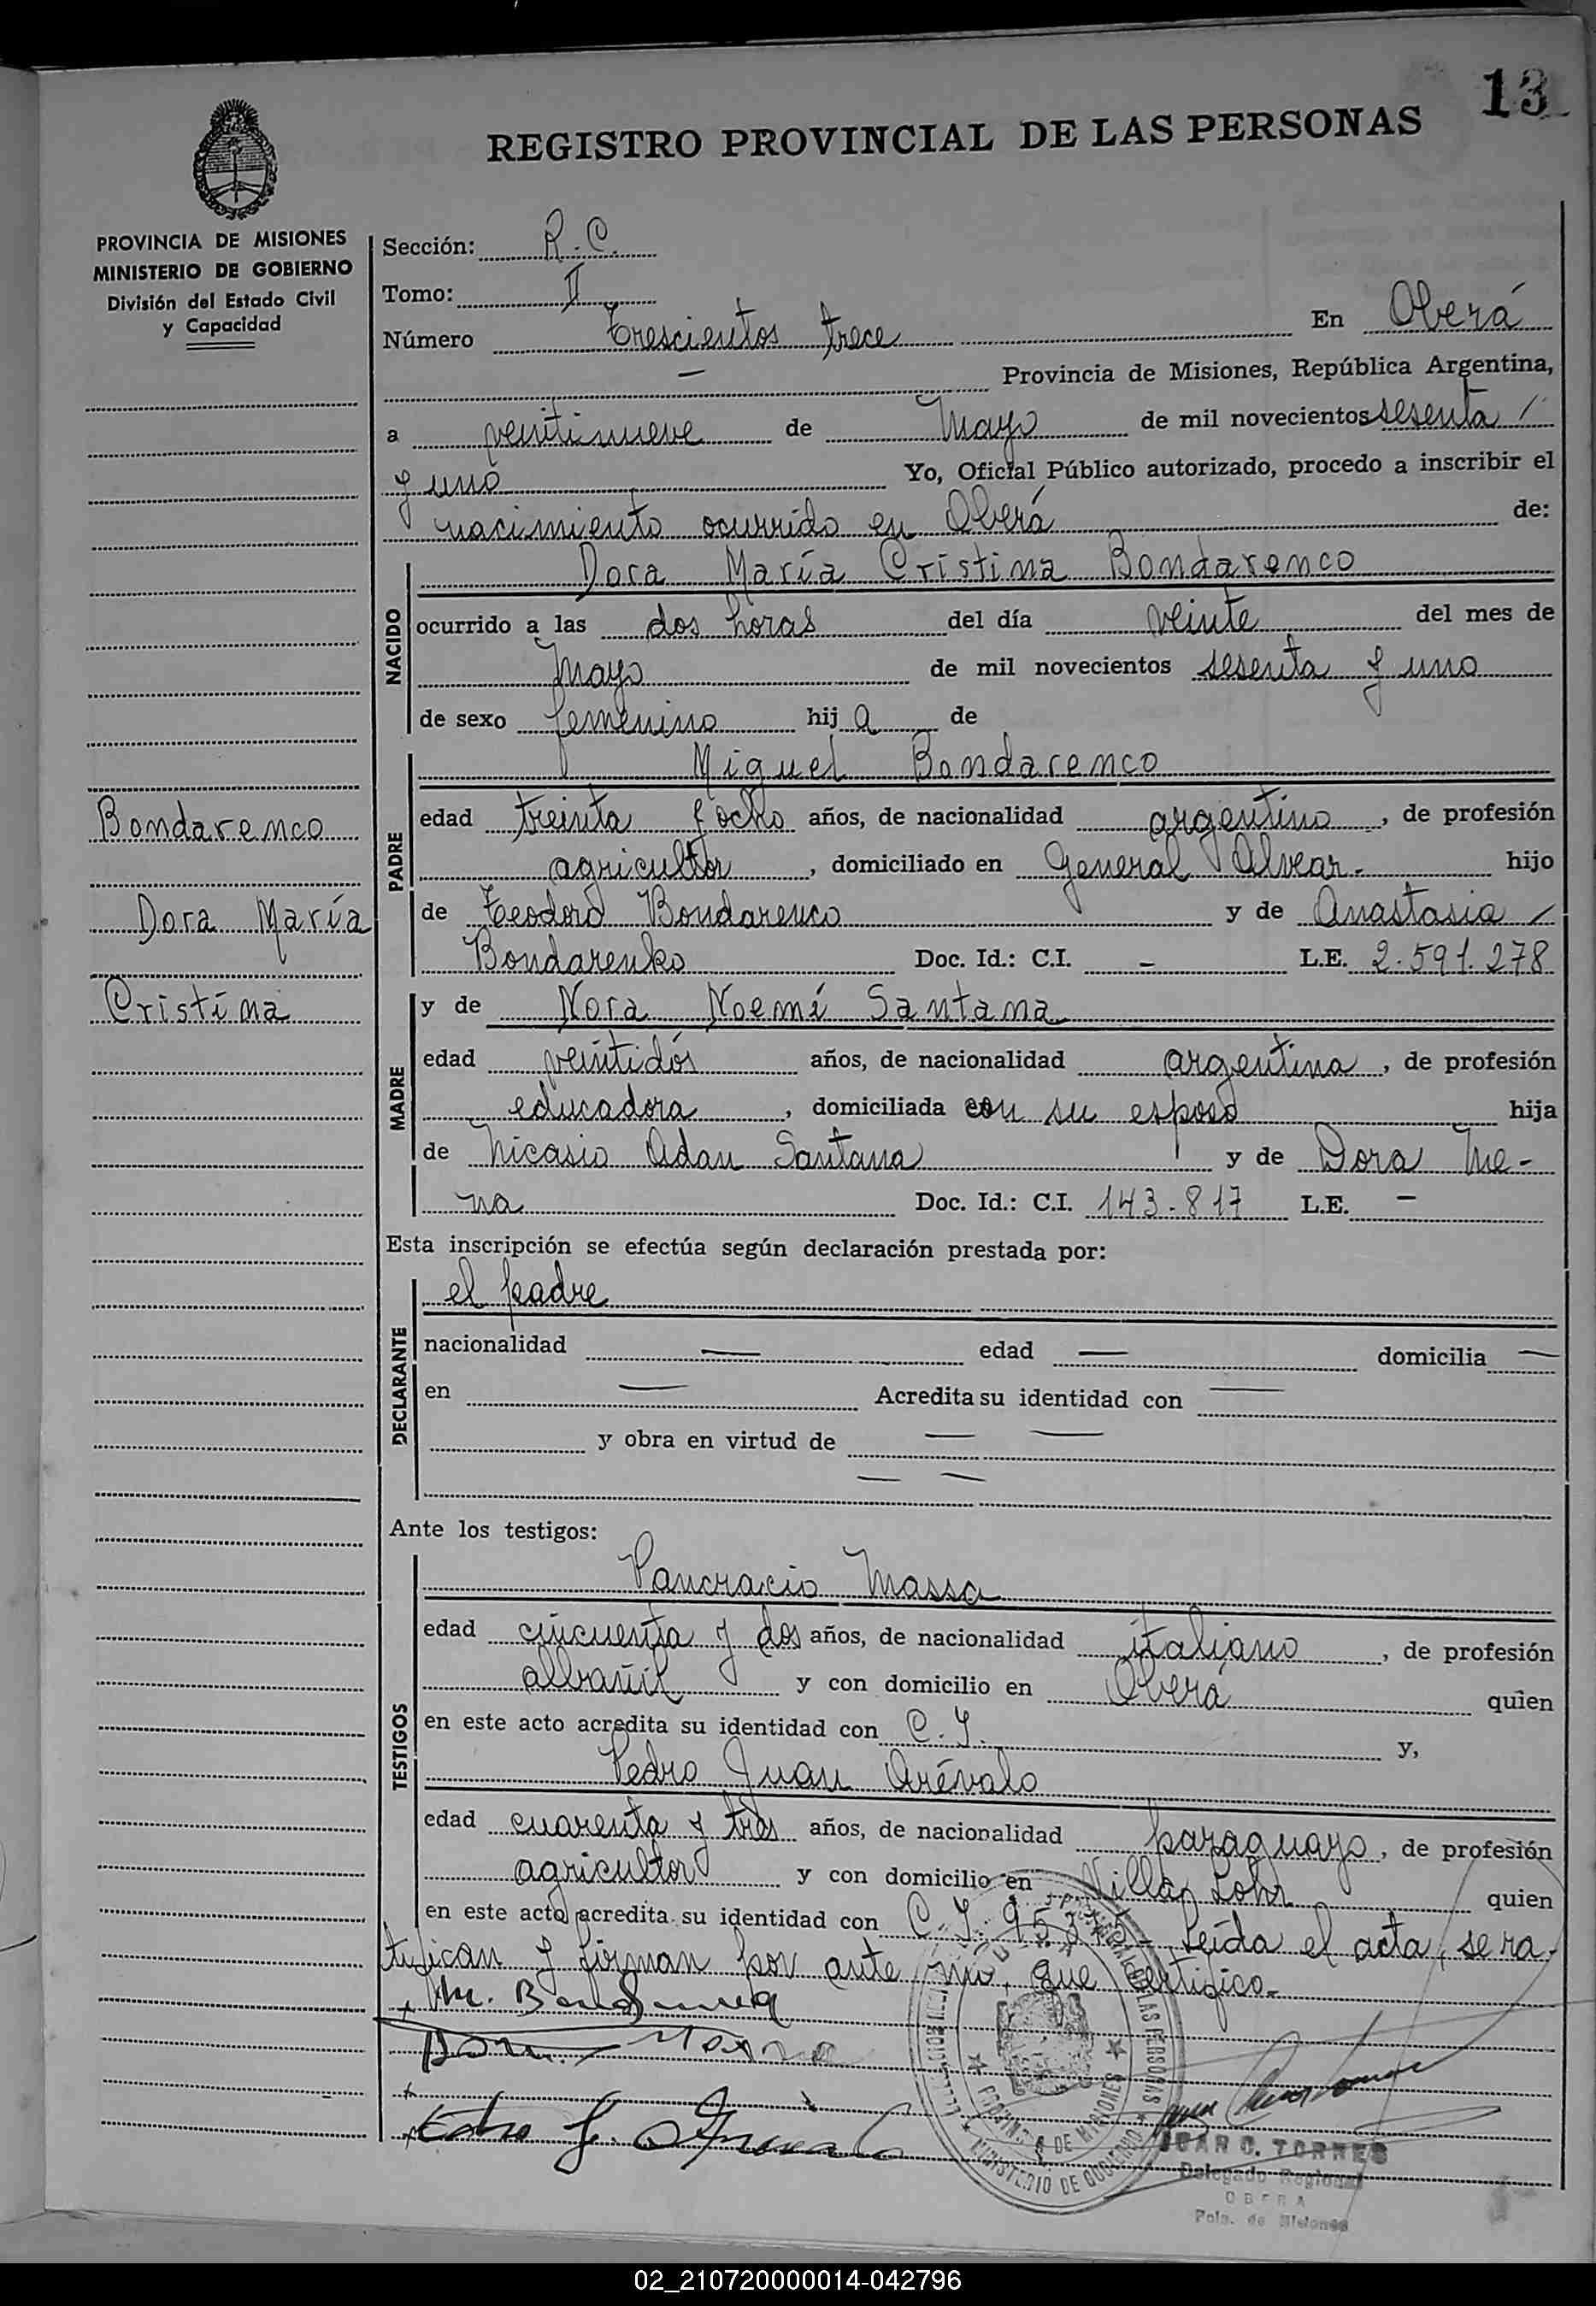 13
REGISTRO PROVINCIAL DE LAS PERSONAS
PROVINCIA DE MISIONES
MINISTERIO DE GOBIERNO
División del Estado Civil
y Capacidad
Sección: R. C.
Tomo: II
Número Trescientos trece En Oberá
— Provincia de Misiones, República Argentina,
a veintinueve de Mayo de mil novecientos sesenta /
y uno Yo, Oficial Público autorizado, procedo a inscribir el
nacimiento ocurrido en Oberá de:
NACIDO
Dora María Cristina Bondarenco
ocurrido a las dos horas del día veinte del mes de
Mayo de mil novecientos sesenta y uno
de sexo femenino hij a de
PADRE
Miguel Bondarenco
edad treinta y ocho años, de nacionalidad argentino, de profesión
agricultor, domiciliado en General Alvear.- hijo
de Teodoro Bondarenco y de Anastasia /
Bondarenko Doc. Id.: C.I. - L.E. 2.591.278
Bondarenco
Dora María
Cristina
MADRE
y de Nora Noemí Santana
edad veintidós años, de nacionalidad argentina, de profesión
educadora, domiciliada con su esposo hija
de Nicasio Adan Santana y de Dora Me-
na Doc. Id.: C.I. 143.817 L.E. —
Esta inscripción se efectúa según declaración prestada por:
DECLARANTE
el padre
nacionalidad — edad — domicilia —
en — Acredita su identidad con —
y obra en virtud de — —
— —
Ante los testigos:
TESTIGOS
Pancracio Massa
edad cincuenta y dos años, de nacionalidad italiano, de profesión
albañil y con domicilio en Oberá quien
en este acto acredita su identidad con C. I. y,
Pedro Juan Arévalo
edad cuarenta y tres años, de nacionalidad paraguayo, de profesión
agricultor y con domicilio en Villa Lohr quien
en este acto acredita su identidad con C. I. Leída el acta, se ra-
tifican y firman por ante mi, que certifico.-
PROVINCIA DE MISIONES
MINISTERIO DE GOBIERNO
JUAN C. TORRES
Delegado Regional
OBERA
Pcia. de Misiones
02_210720000014-042796